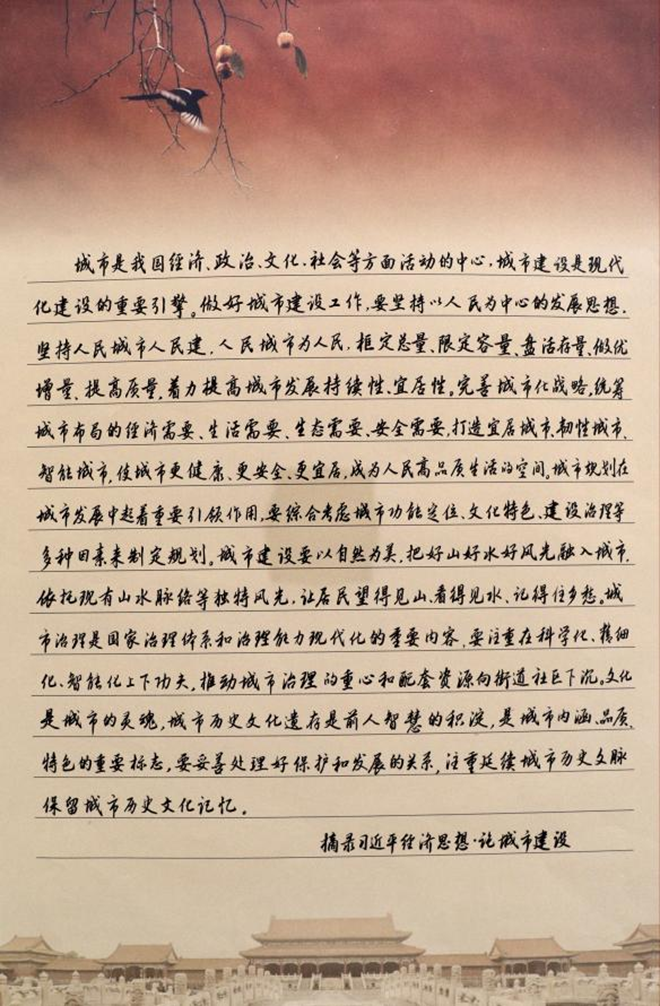 城市是我国经济、政治、文化、社会等方面活动的中心,城市建设是现代
化建设的重要引擎。做好城市建设工作,要坚持以人民为中心的发展思想,
坚持人民城市人民建,人民城市为人民,框定总量、限定容量、盘活存量、做优
增量、提高质量,着力提高城市发展持续性、宜居性。完善城市化战略,统筹
城市布局的经济需要、生活需要、生态需要、安全需要,打造宜居城市、韧性城市、
智能城市,使城市更健康、更安全、更宜居,成为人民高品质生活的空间。城市规划在
城市发展中起着重要引领作用,要综合考虑城市功能定位、文化特色、建设治理等
多种因素来制定规划。城市建设要以自然为美,把好山好水好风光融入城市,
依托现有山水脉络等独特风光,让居民望得见山、看得见水、记得住乡愁。城
市治理是国家治理体系和治理能力现代化的重要内容,要注重在科学化、精细
化、智能化上下功夫,推动城市治理的重心和配套资源向街道社区下沉。文化
是城市的灵魂,城市历史文化遗存是前人智慧的积淀,是城市内涵、品质、
特色的重要标志,要妥善处理好保护和发展的关系,注重延续城市历史文脉
保留城市历史文化记忆。
摘录习近平经济思想·论城市建设